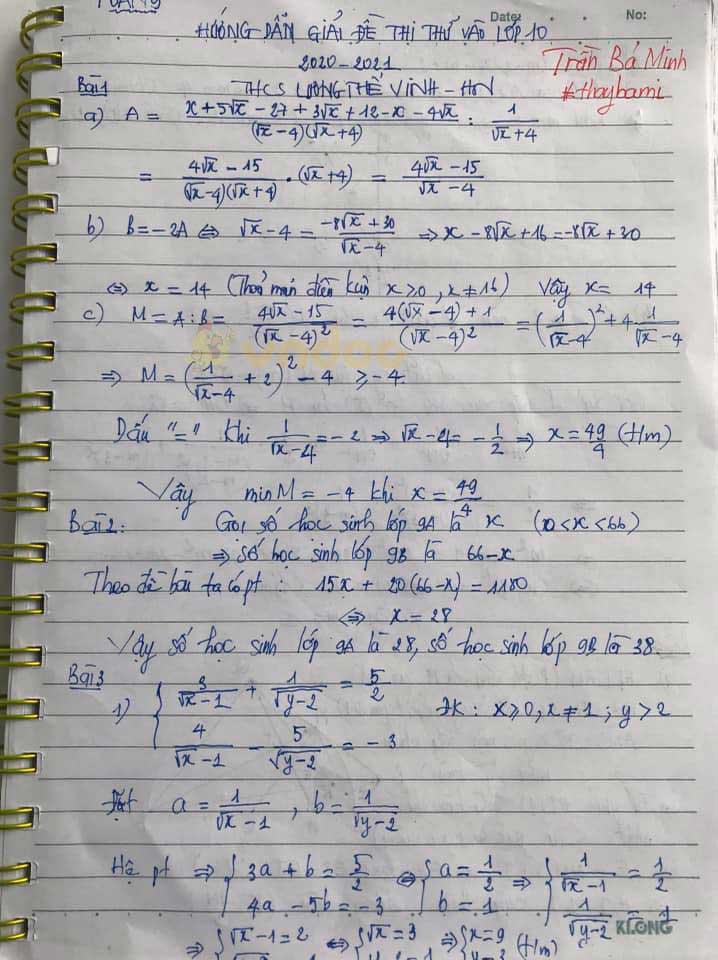 TUẦN 9
Date: No:
HƯỚNG DẪN GIẢI ĐỀ THI THỬ VÀO LỚP 10
2020 - 2021
Trần Bá Minh
THCS LƯƠNG THẾ VINH - HN
#thaybami
Bài 1
a) A = (x + 5√x - 27 + 3√x + 12 - x - 4√x)/((√x - 4)(√x + 4)) : 1/(√x + 4)
= (4√x - 15)/((√x - 4)(√x + 4)) . (√x + 4) = (4√x - 15)/(√x - 4)
b) B = -2A ⇔ √x - 4 = (-8√x + 30)/(√x - 4) ⇒ x - 8√x + 16 = -8√x + 30
⇔ x = 14 (Thoả mãn điều kiện x > 0, x ≠ 16) Vậy x = 14
c) M = A : B = (4√x - 15)/(√x - 4)² = (4(√x - 4) + 1)/(√x - 4)² = (1/(√x - 4))² + 4 1/(√x - 4)
vndoc
⇒ M = (1/(√x - 4) + 2)² - 4 ≥ -4
Dấu "=" khi 1/(√x - 4) = -2 ⇒ √x - 4 = -1/2 ⇒ x = 49/4 (t/m)
Vậy min M = -4 khi x = 49/4
Bài 2: Gọi số học sinh lớp 9A là x (0 < x < 66)
⇒ số học sinh lớp 9B là 66 - x
Theo đề bài ta có pt : 15x + 20(66 - x) = 1180
⇔ x = 28
Vậy số học sinh lớp 9A là 28, số học sinh lớp 9B là 38.
Bài 3
1) { 3/(√x - 1) + 1/(√y-2) = 5/2 ĐK : x ≥ 0, x ≠ 1 ; y > 2
4/(√x - 1) - 5/(√y-2) = -3
Đặt a = 1/(√x - 1) , b = 1/(√y-2)
Hệ pt ⇒ { 3a + b = 5/2 ⇔ { a = 1/2 ⇒ { 1/(√x - 1) = 1/2
4a - 5b = -3 b = 1 1/(√y-2) = 1
KLONG
⇒ { √x - 1 = 2 ⇔ { √x = 3 ⇒ { x = 9 (t/m)